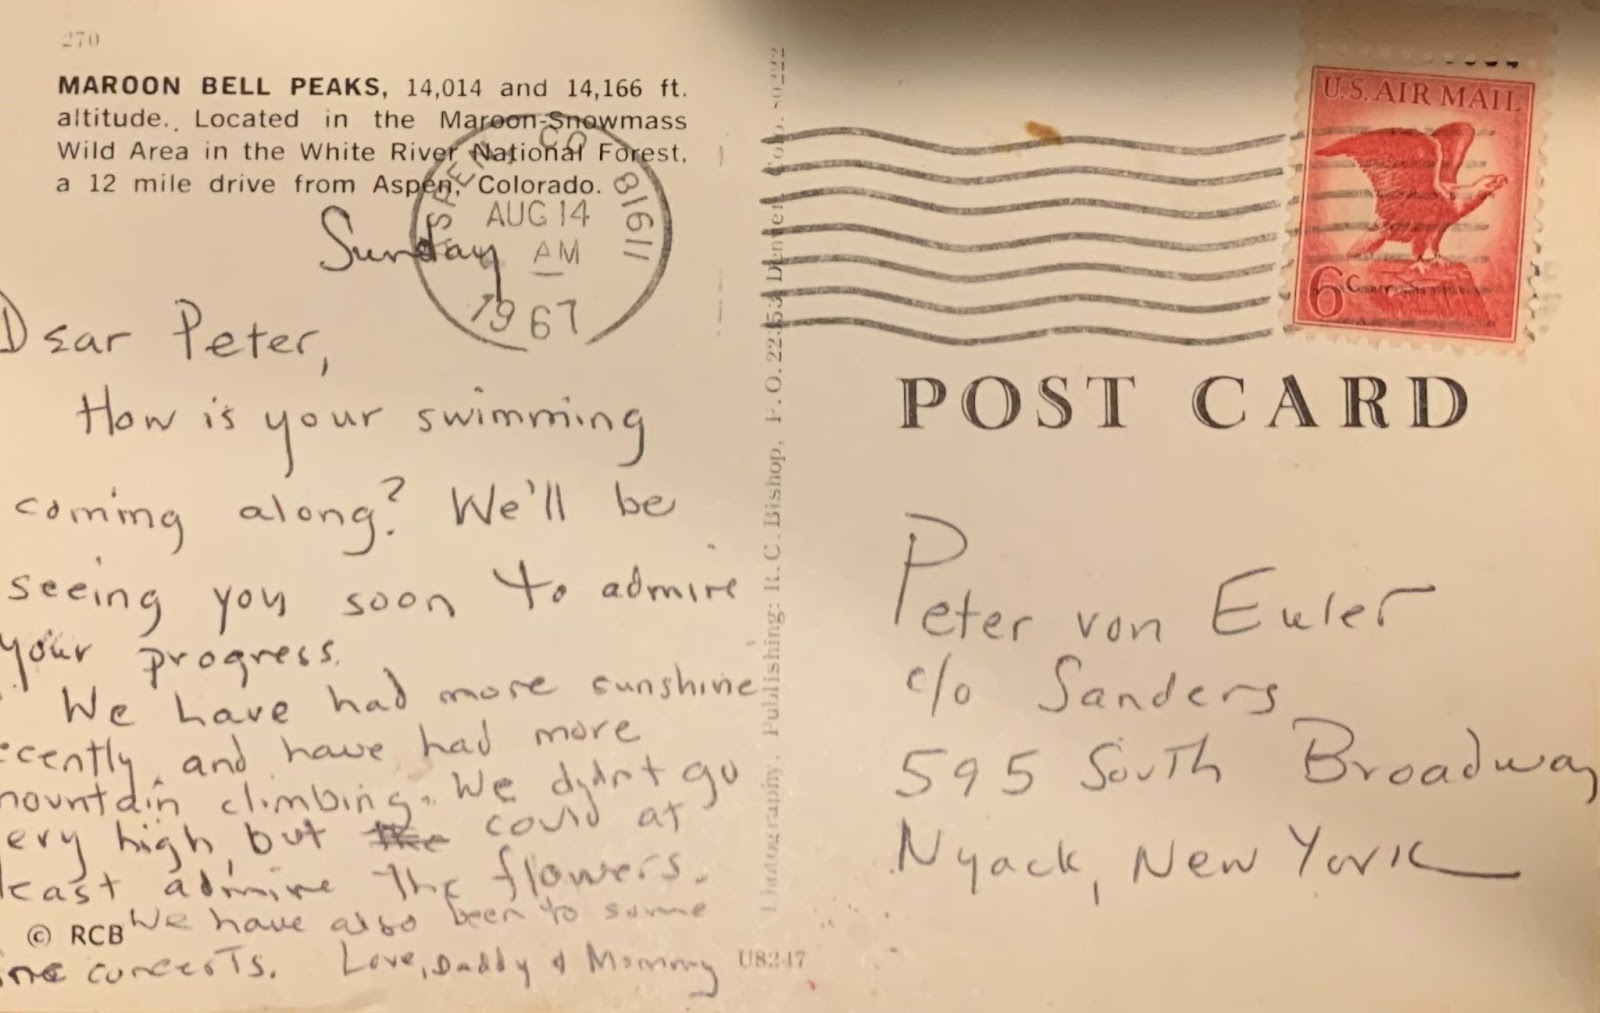 270
MAROON BELL PEAKS, 14,014 and 14,166 ft.
altitude. Located in the Maroon-Snowmass
Wild Area in the White River National Forest,
a 12 mile drive from Aspen, Colorado.
ASPEN, CO 81611
AUG 14
AM
1967
Sunday
Dear Peter,
How is your swimming
coming along? We'll be
seeing you soon to admire
your progress.
We have had more sunshine
ecently and have had more
mountain climbing. We didn't go
ery high, but the could at
least admire the flowers.
We have also been to some
© RCB
ine concerts. Love, Daddy & Mommy
Photography, Publishing: R.C. Bishop, P.O. 22253 Denver, Colo. 80222
U8247
U.S. AIR MAIL
6c
POST CARD
Peter von Euler
c/o Sanders
595 South Broadway
Nyack, New York